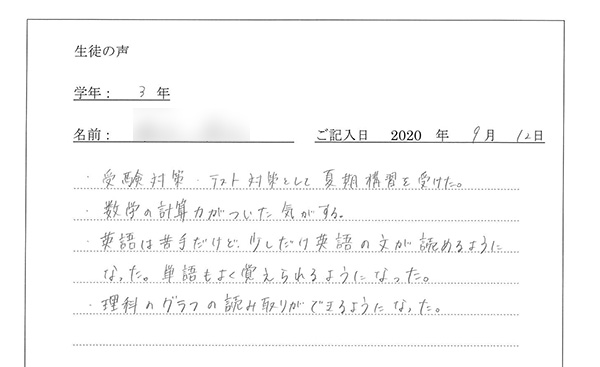 生徒の声
学年： 3 年
名前： ご記入日 2020 年 9 月 12 日
・受験対策・テスト対策として夏期構習を受けた。
・数学の計算力がついた気がする。
・英語は苦手だけど、少しだけ英語の文が読めるように
なった。単語もよく覚えられるようになった。
・理科のグラフの読み取りができるようになった。